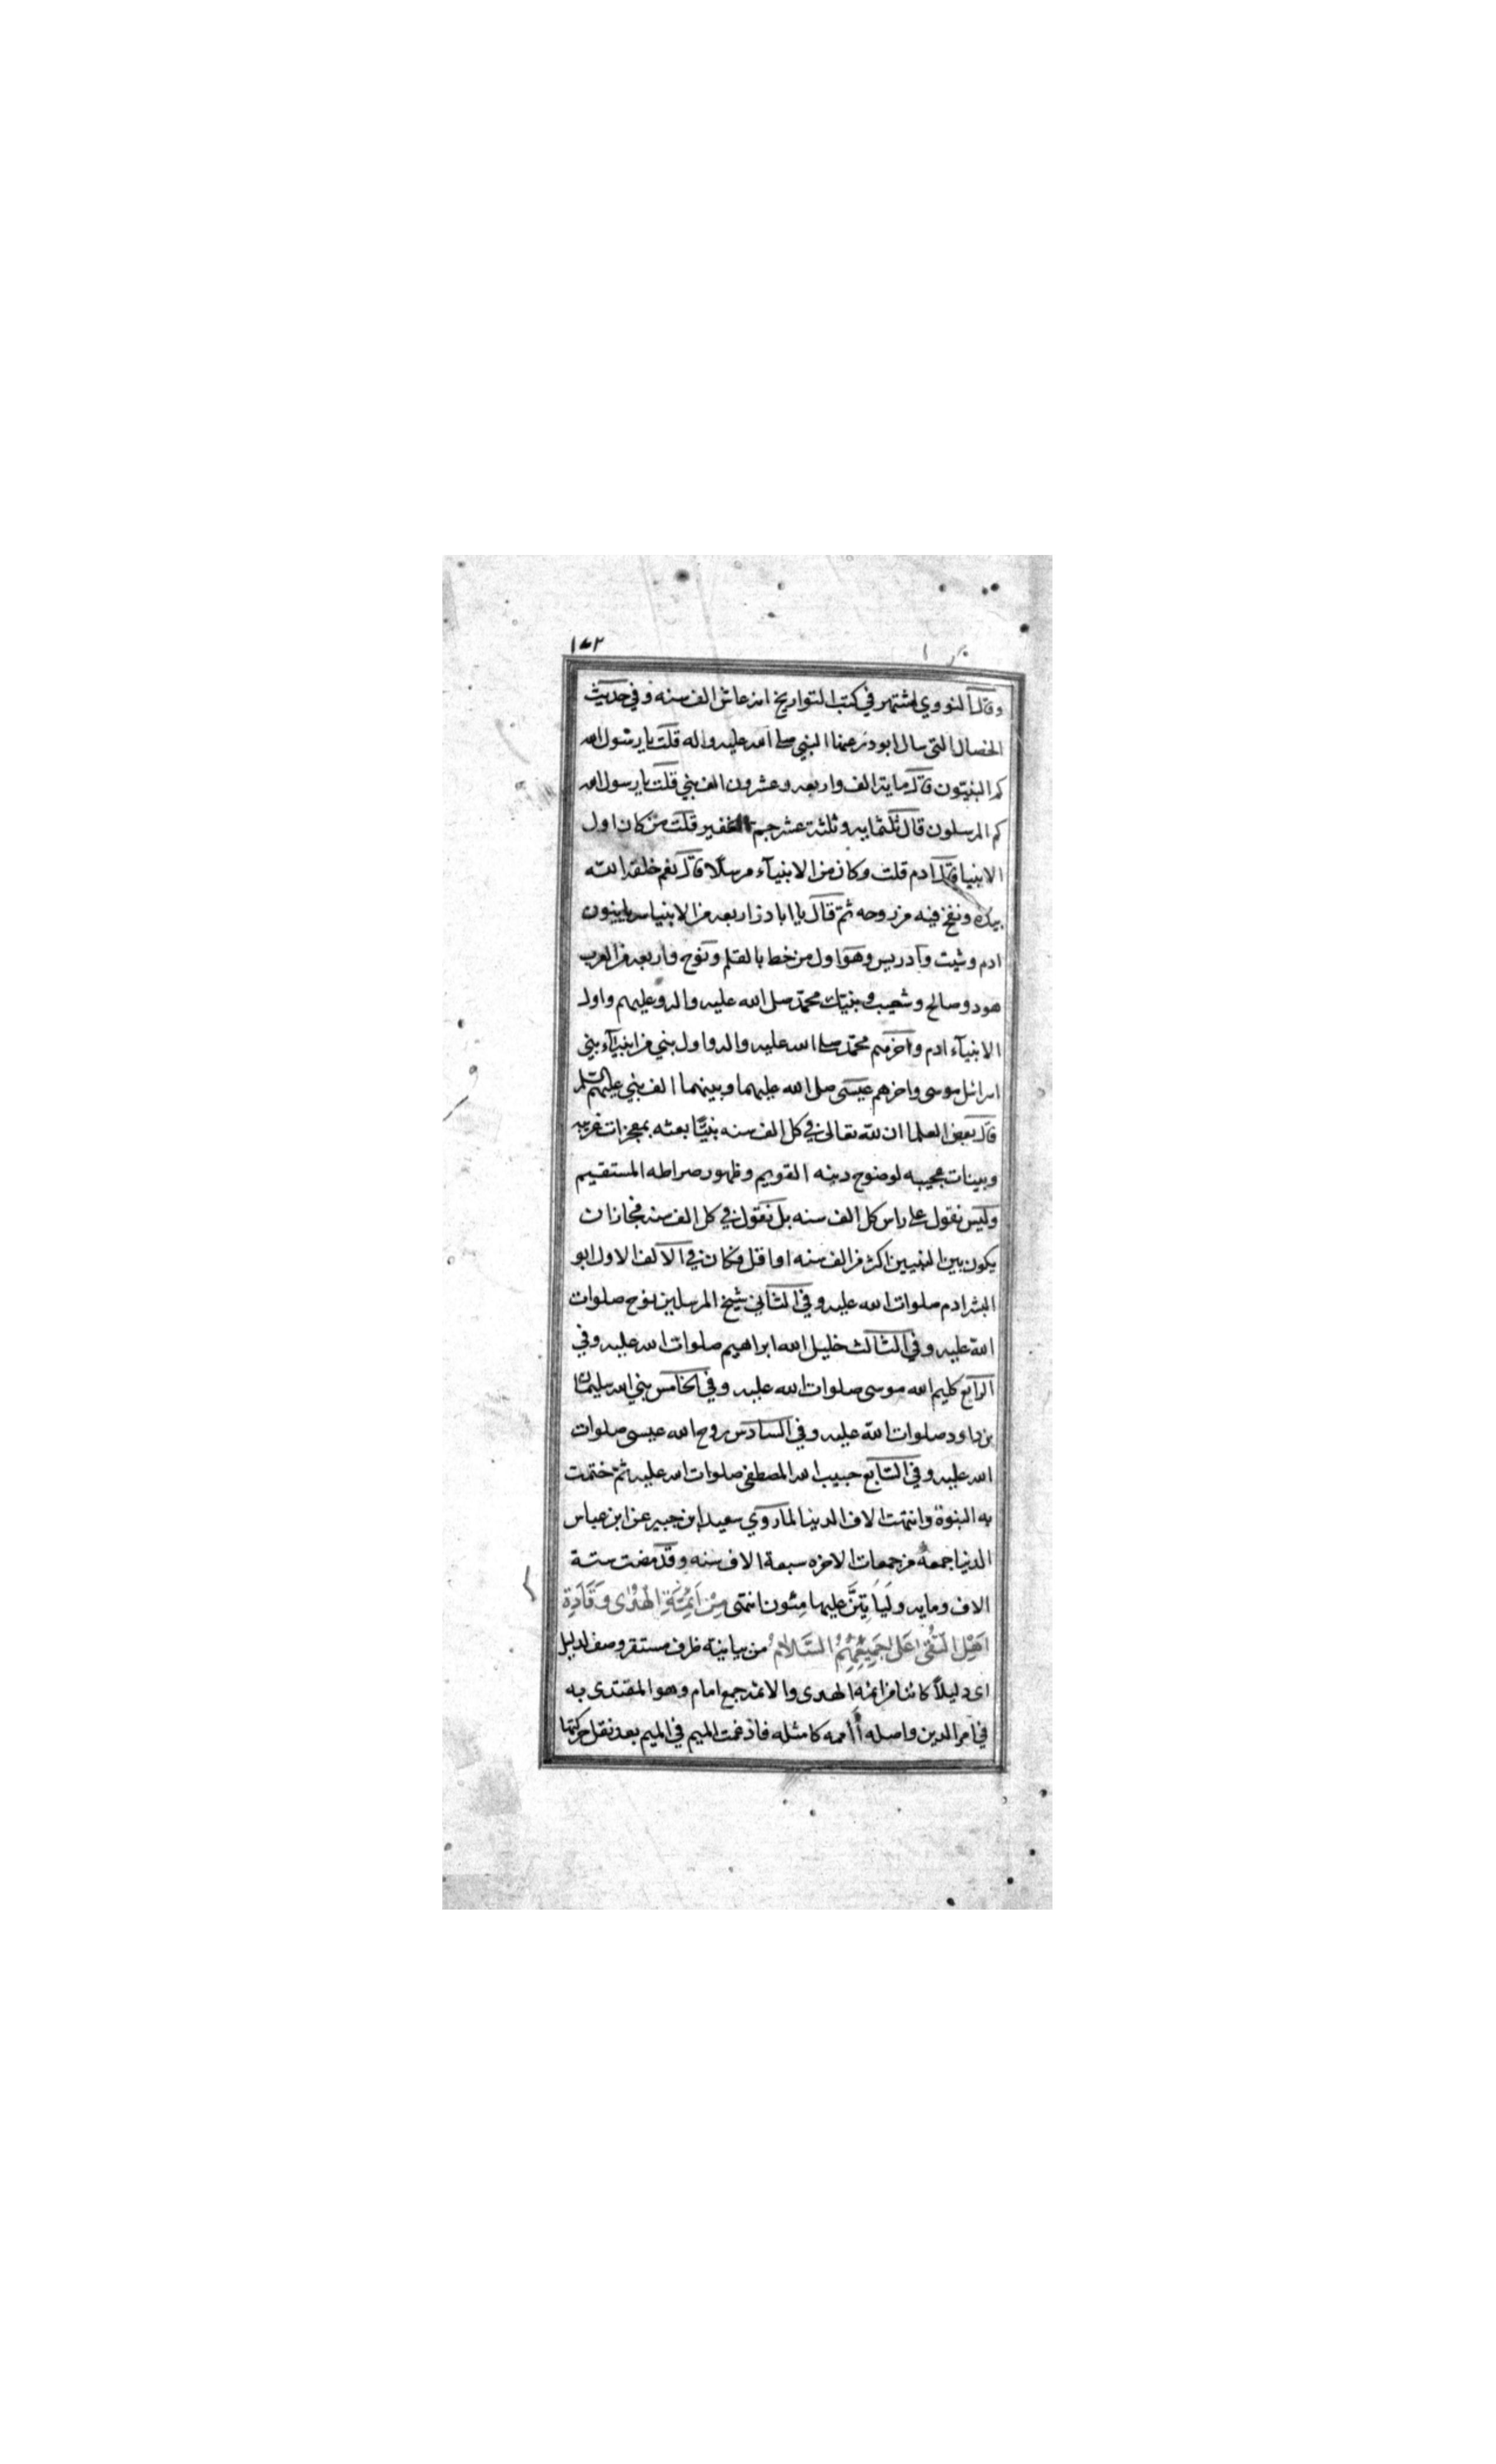 ١٧٢
وقال النووي اشتهر في كتب التواريخ انه عاش الف سنه وفي حديث
الخصال التي سال ابوذر عنها النبي صلى الله عليه واله قلت يا رسول الله
كم النبيون قال ماية الف واربعه وعشرون الف نبي قلت يا رسول الله
كم المرسلون قال ثلثمايه وثلثة عشر جم الغفير قلت من كان اول
الانبيا قال ادم قلت وكان من الانبياء مرسلا قال نعم خلقه الله
بيده ونفخ فيه من روحه ثم قال يا اباذر اربعه من الانبيا سريانيون
ادم وشيث وادريس وهو اول من خط بالقلم ونوح واربعه من العرب
هود وصالح وشعيب ونبيك محمد صلى الله عليه واله وعليهم واول
الانبياء ادم واخرهم محمد صلى الله عليه واله واول نبي من انبياء بني
اسرائل موسى واخرهم عيسى صلى الله عليهما وبينهما الف نبي عليهم السلم
قال بعض العلما ان لله تعالى في كل الف سنه نبيا بعثه بمعجزات غريبه
وبينات عجيبه لوضوح دينه القويم وظهور صراطه المستقيم
وليس نقول على راس كل الف سنه بل نقول في كل الف سنه فجاز ان
يكون بين النبيين اكثر من الف سنه او اقل فكان في الالف الاول ابو
البشر ادم صلوات الله عليه وفي الثاني شيخ المرسلين نوح صلوات
الله عليه وفي الثالث خليل الله ابراهيم صلوات الله عليه وفي
الرابع كليم الله موسى صلوات الله عليه وفي الخامس نبي الله سليمان
بن داود صلوات الله عليه وفي السادس روح الله عيسى صلوات
الله عليه وفي السابع حبيب الله المصطفى صلوات الله عليه ثم ختمت
به النبوة وانتهت الاف الدنيا لما روي سعيد ابن جبير عن ابن عباس
الدنيا جمعة من جمعات الاخره سبعة الاف سنه وقد مضت ستة
الاف ومايه ولياتين عليها مئون انتهى مِنْ اَئِمَّةِ الْهُدٰى وَقَادَةِ
اَهْلِ التُّقٰى عَلٰى جَمِيعِهِمُ السَّلَامُ من بيانيه ظرف مستقر وصف لدليل
اى دليلاً كائنا من ائمه الهدى والائمه جمع امام وهو المقتدى به
في امر الدين واصله أاممه كامثله فادغمت الميم في الميم بعد نقل حركتها